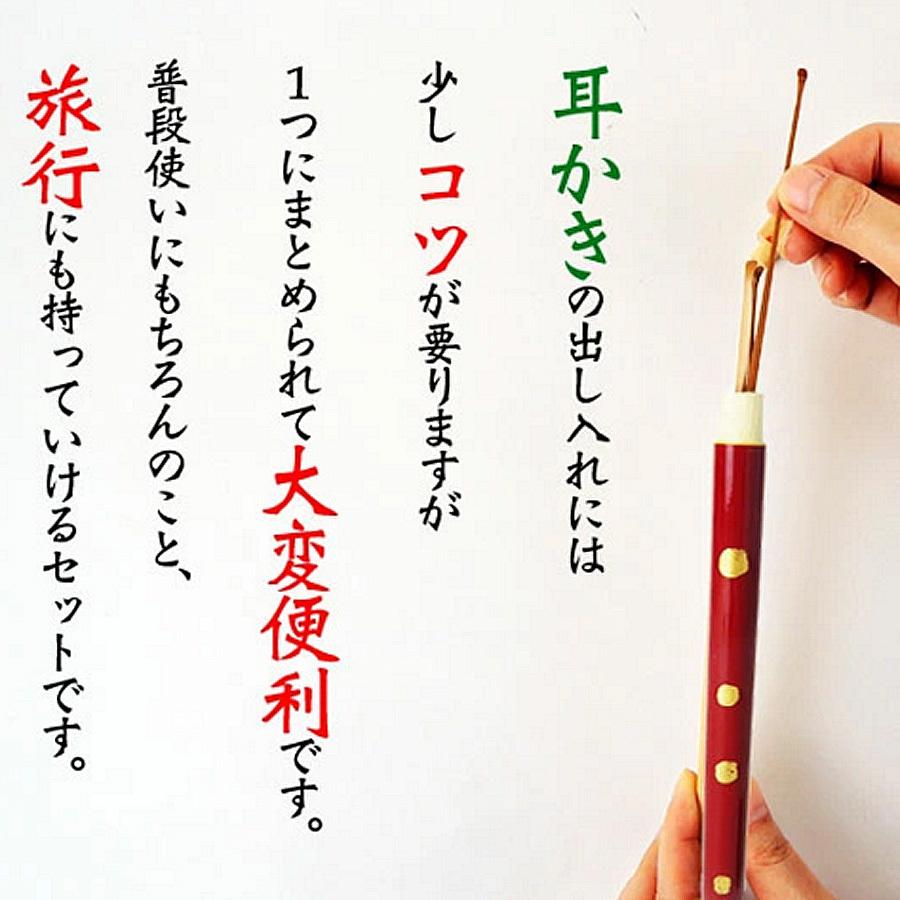 耳かきの出し入れには
少しコツが要りますが
１つにまとめられて大変便利です。
普段使いにもちろんのこと、
旅行にも持っていけるセットです。